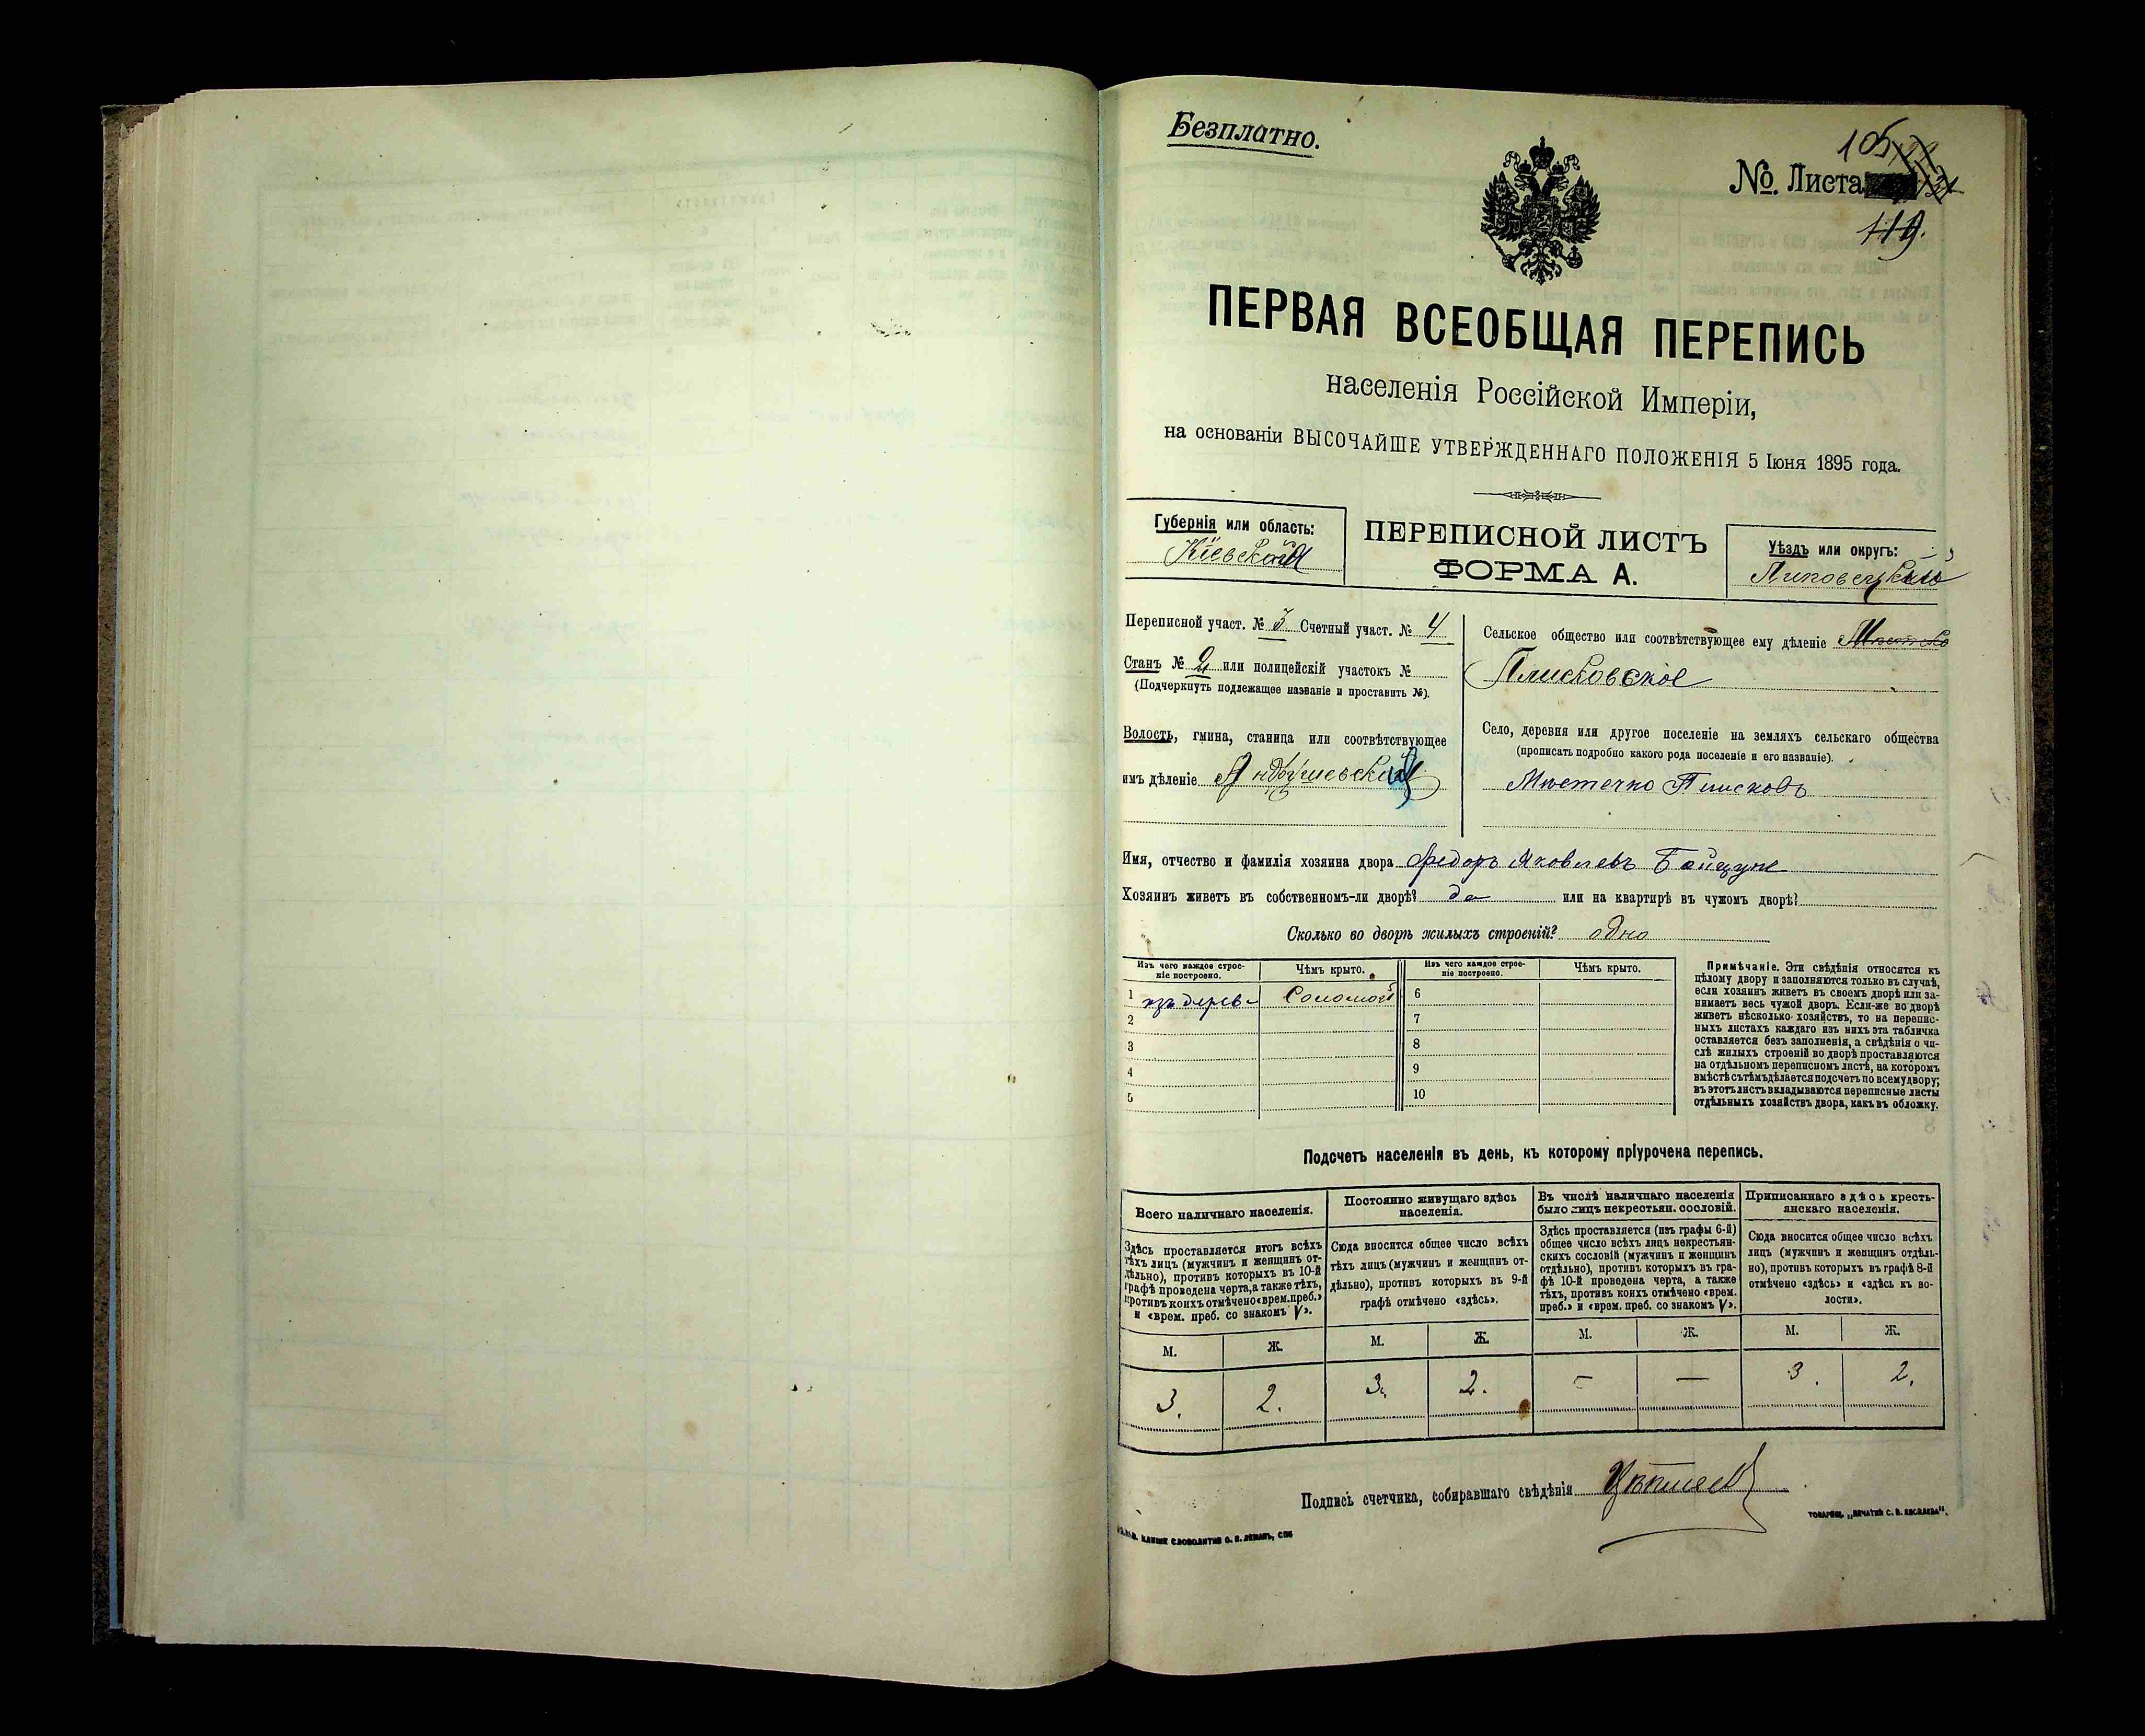 Безплатно.
105
№. Листа
119.
ПЕРВАЯ ВСЕОБЩАЯ ПЕРЕПИСЬ
населенія Россійской Имперіи,
на основаніи ВЫСОЧАЙШЕ УТВЕРЖДЕННАГО ПОЛОЖЕНІЯ 5 Іюня 1895 года.
Губернія или область:
Кіевская
ПЕРЕПИСНОЙ ЛИСТЪ
ФОРМА А.
Уѣздъ или округъ:
Липовецкій
Переписной участ. № 3 Счетный участ. № 4
Станъ № 2 или полицейскій участокъ №
(Подчеркнуть подлежащее названіе и проставить №).
Волость, гмина, станица или соотвѣтствующее
имъ дѣленіе Андрушевская
Сельское общество или соотвѣтствующее ему дѣленіе
Плисковское
Село, деревня или другое поселеніе на земляхъ сельскаго общества
(прописать подробно какого рода поселеніе и его названіе).
Мѣстечко Плисковъ
Имя, отчество и фамилія хозяина двора Федоръ Яковлевъ Бойцун
Хозяинъ живетъ въ собственномъ-ли дворѣ? да или на квартирѣ въ чужомъ дворѣ?
Сколько во дворѣ жилыхъ строеній? одно
Изъ чего каждое строе-
ніе построено.
Чѣмъ крыто.
Изъ чего каждое строе-
ніе построено.
Чѣмъ крыто.
1 изъ дерева Соломой 6
2 7
3 8
4 9
5 10
Примѣчаніе. Эти свѣдѣнія относятся къ
цѣлому двору и заполняются только въ случаѣ,
если хозяинъ живетъ въ своемъ дворѣ или за-
нимаетъ весь чужой дворъ. Если-же во дворѣ
живетъ нѣсколько хозяйствъ, то на перепис-
ныхъ листахъ каждаго изъ нихъ эта табличка
оставляется безъ заполненія, а свѣдѣнія о чи-
слѣ жилыхъ строеній во дворѣ проставляются
на отдѣльномъ переписномъ листѣ, на которомъ
вмѣстѣ съ тѣмъ дѣлается подсчетъ по всему двору;
въ этотъ листъ вкладываются переписные листы
отдѣльныхъ хозяйствъ двора, какъ въ обложку.
Подсчетъ населенія въ день, къ которому пріурочена перепись.
Всего наличнаго населенія.
Здѣсь проставляется итогъ всѣхъ
тѣхъ лицъ (мужчинъ и женщинъ от-
дѣльно), противъ которыхъ въ 10-й
графѣ проведена черта, а также тѣхъ,
противъ коихъ отмѣчено «врем. преб.»
и «врем. преб. со знакомъ V».
Постоянно живущаго здѣсь
населенія.
Сюда вносится общее число всѣхъ
тѣхъ лицъ (мужчинъ и женщинъ от-
дѣльно), противъ которыхъ въ 9-й
графѣ отмѣчено «здѣсь».
Въ числѣ наличнаго населенія
было лицъ некрестьян. сословій.
Здѣсь проставляется (изъ графы 6-й)
общее число всѣхъ лицъ некрестьян-
скихъ сословій (мужчинъ и женщинъ
отдѣльно), противъ которыхъ въ гра-
фѣ 10-й проведена черта, а также
тѣхъ, противъ коихъ отмѣчено «врем.
преб.» и «врем. преб. со знакомъ V».
Приписаннаго здѣсь кресть-
янскаго населенія.
Сюда вносится общее число всѣхъ
лицъ (мужчинъ и женщинъ отдѣль-
но), противъ которыхъ въ графѣ 8-й
отмѣчено «здѣсь» и «здѣсь къ во-
лости».
М. Ж. М. Ж. М. Ж. М. Ж.
3. 2. 3. 2. — — 3. 2.
Подпись счетчика, собиравшаго свѣдѣнія
КЛИШЕ СЛОВОЛИТНИ О. И. ЛЕМАНЪ, СПБ
ТОВАРИЩ. „ПЕЧАТНЯ С. П. ЯКОВЛЕВА“.